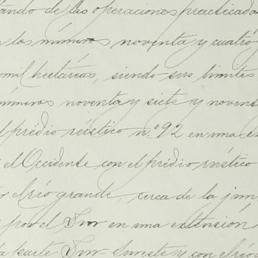 tando de las operaciones practicadas
los números noventa y cuatro
hectáreas, siendo sus límites
números noventa y siete y noven
el prédio rústico nº 92 en una ex
el Occidente con el prédio rústico
el río grande, cerca de la jun
por el Sur en una extension
la parte Sur-Sureste y con el río